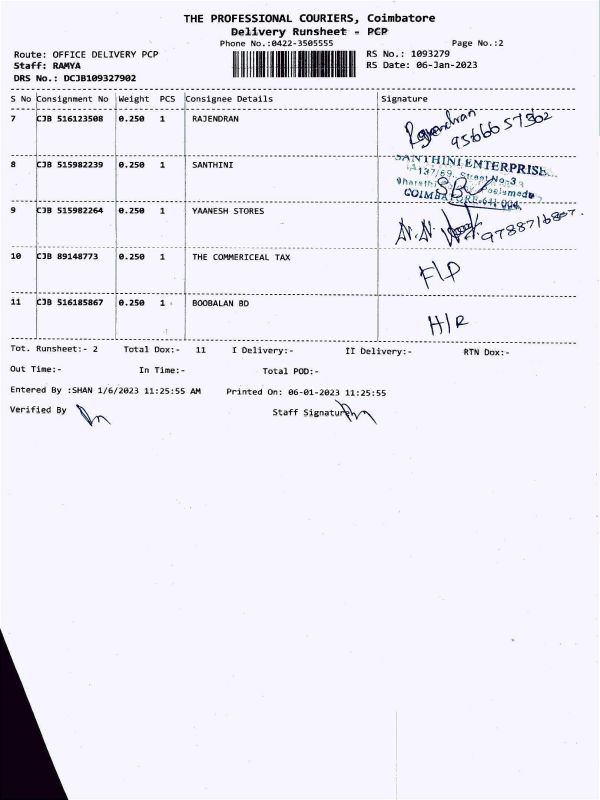 THE PROFESSIONAL COURIERS, Coimbatore
Delivery Runsheet - PCP
Phone No.:0422-3505555
Page No.:2
Route: OFFICE DELIVERY PCP
RS No.: 1093279
Staff: RAMYA
RS Date: 06-Jan-2023
DRS No.: DCJB109327902
S No Consignment No Weight PCS Consignee Details Signature
7 CJB 516123508 0.250 1 RAJENDRAN
Rajendran
9566657302
8 CJB 515982239 0.250 1 SANTHINI
SANTHINI ENTERPRISE
137/69, Street No-3
COIMBATORE-641 004.
9 CJB 515982264 0.250 1 YAANESH STORES
10 CJB 89148773 0.250 1 THE COMMERICEAL TAX
F/P
11 CJB 516185867 0.250 1 BOOBALAN BD
H/R
Tot. Runsheet:- 2 Total Dox:- 11 I Delivery:- II Delivery:- RTN Dox:-
Out Time:- In Time:- Total POD:-
Entered By :SHAN 1/6/2023 11:25:55 AM Printed On: 06-01-2023 11:25:55
Verified By Staff Signature